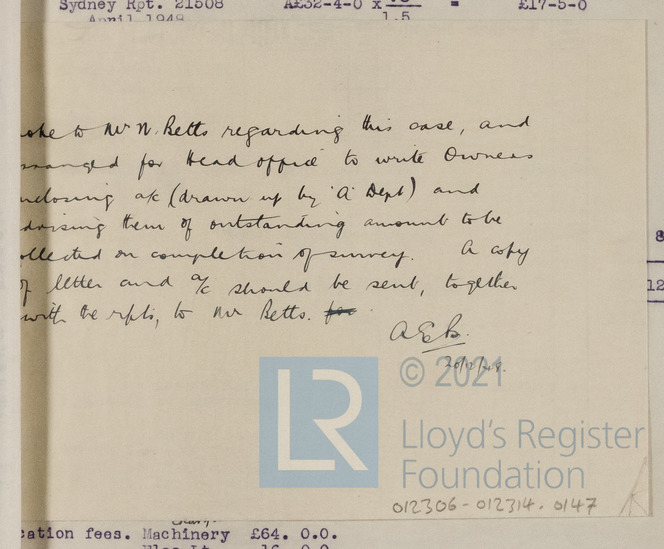 Sydney Rpt. 21508 A£32-4-0 x 1.5 = £17-5-0
April 1948
oke to Mr N. Betts regarding this case, and
rranged for Head office to write Owners
nclosing a/c (drawn up by 'A' Dept) and
dvising them of outstanding amount to be
ollected on completion of survey. A copy
of letter and a/c should be sent, together
with the rpts, to Mr Betts.
A.E.B.
20/12/48.
8
12
LR
© 2021
Lloyd's Register
Foundation
012306-012314.0147
cation fees. Machinery £64. 0.0.